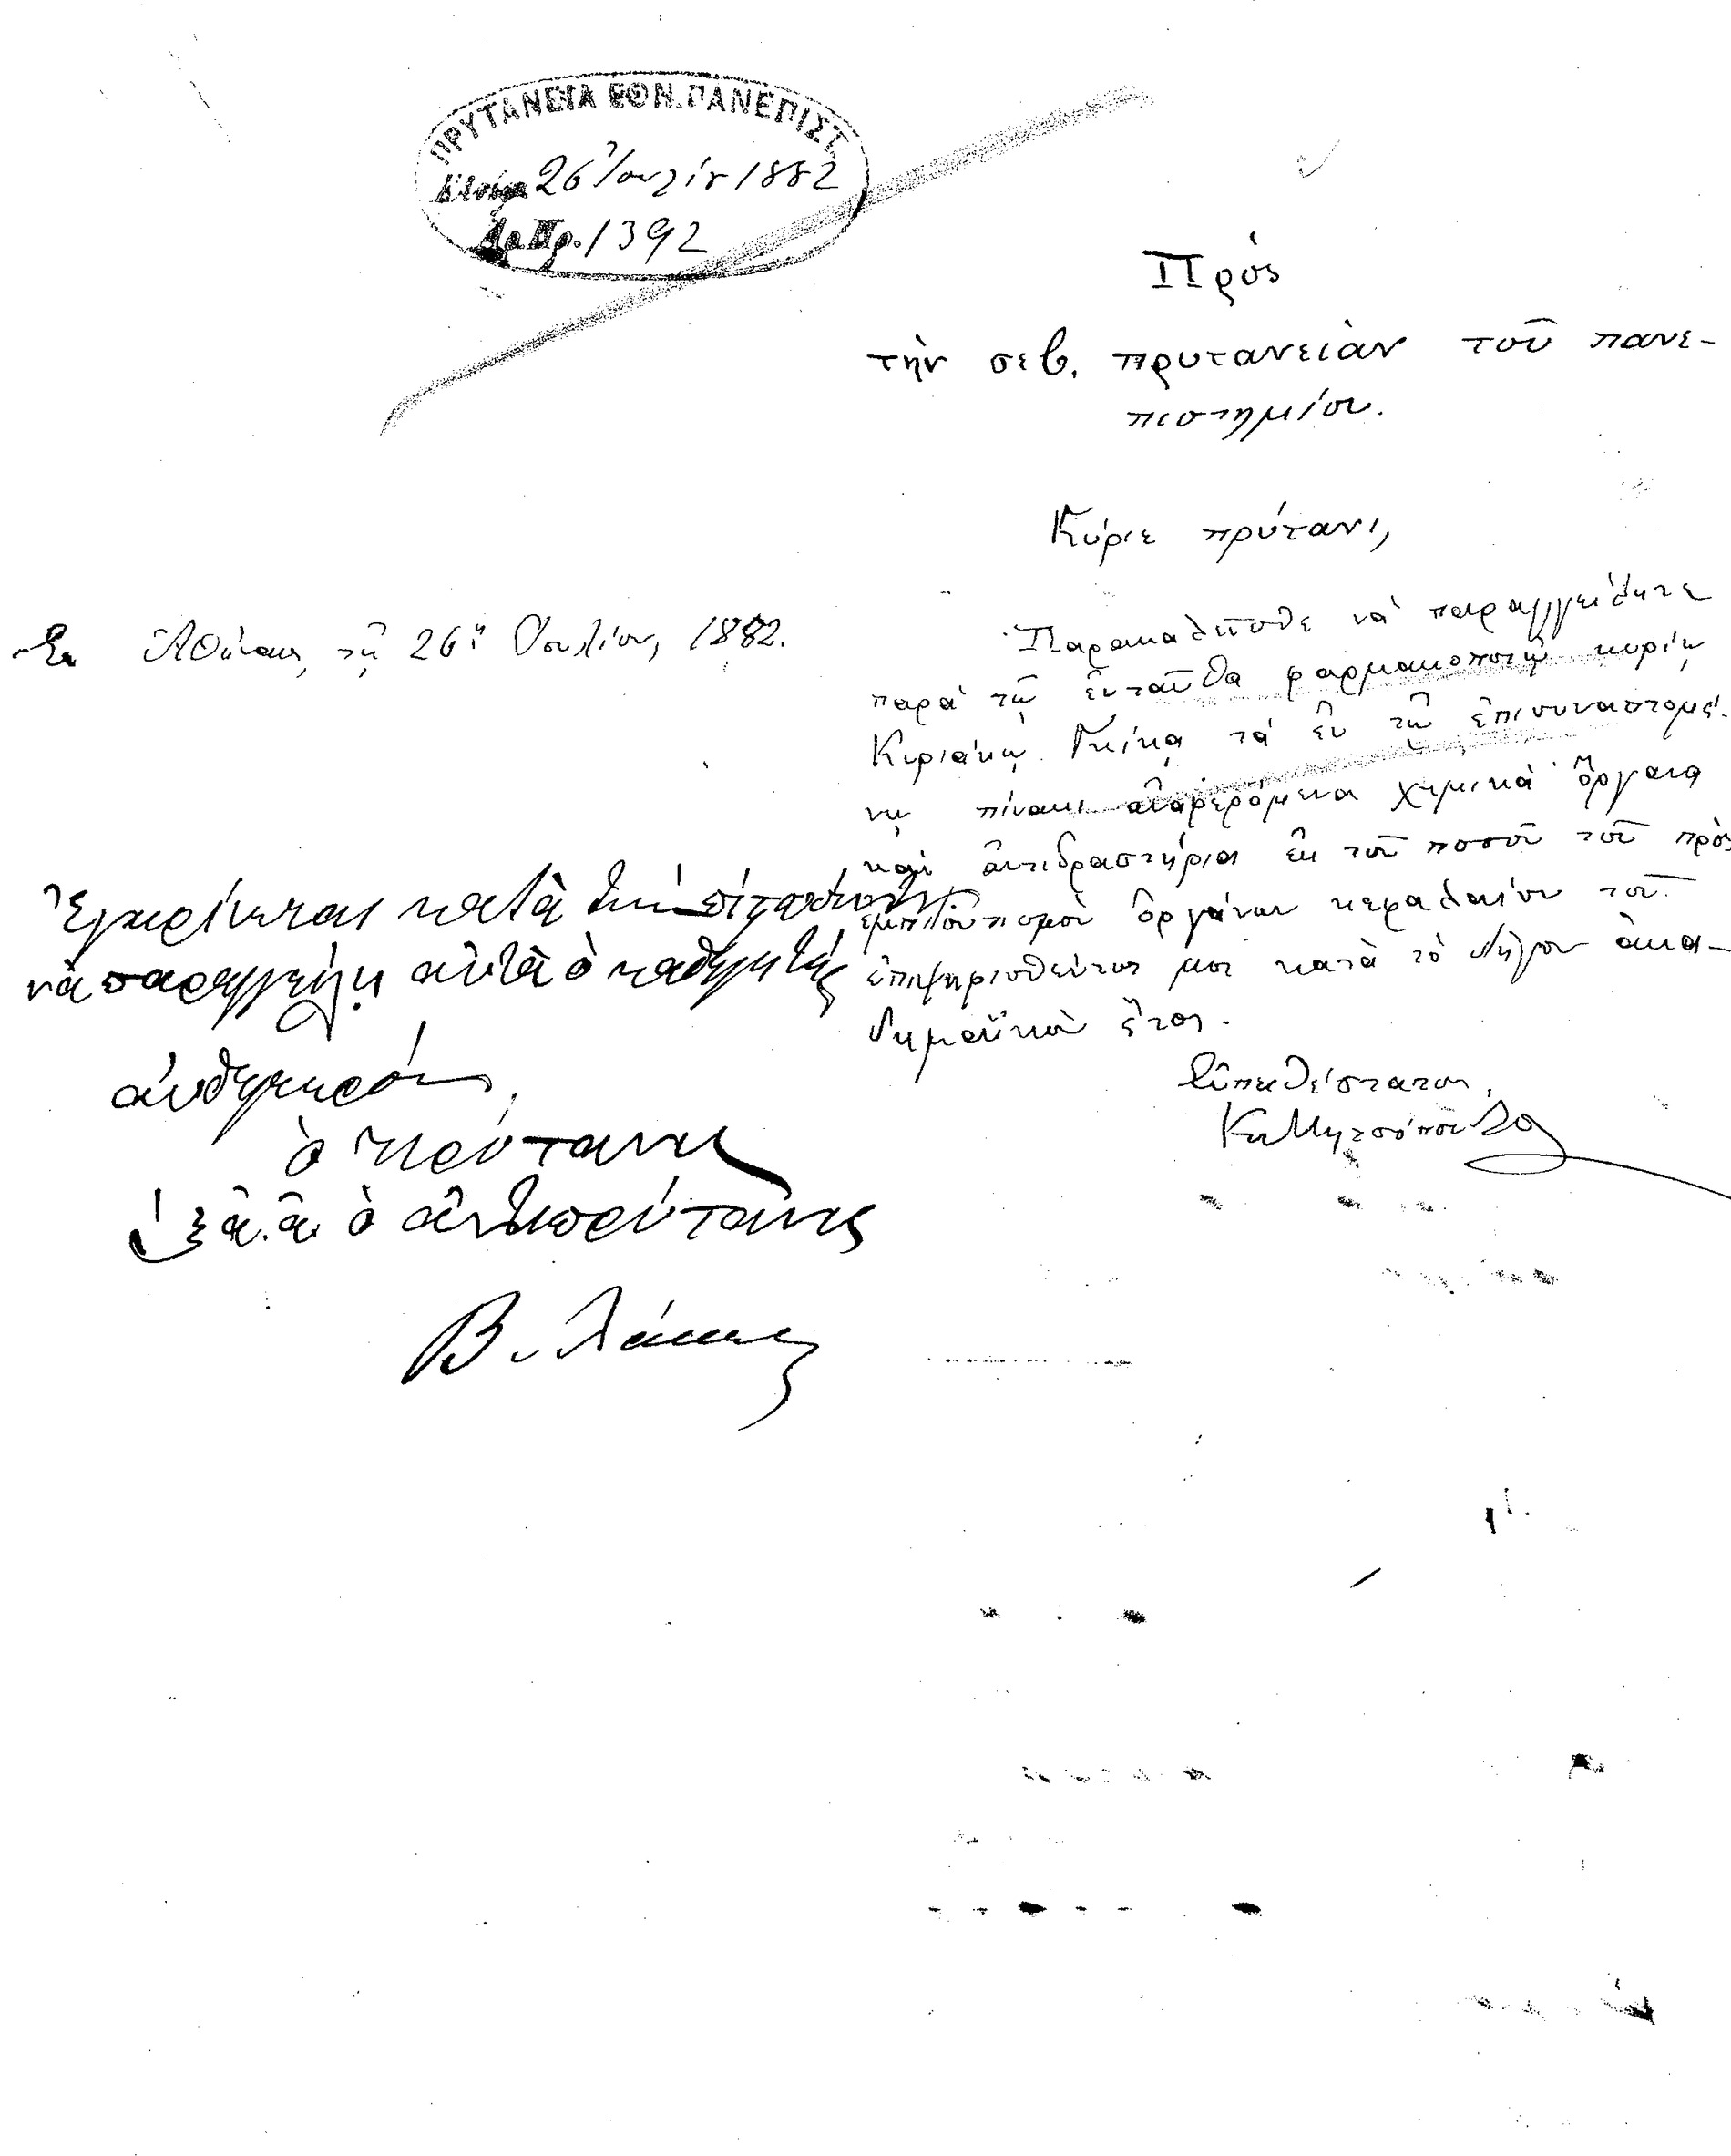 ΠΡΥΤΑΝΕΙΑ ΕΘΝ. ΠΑΝΕΠΙΣΤ.
26 Ἰουλίου 1882
Ἀρ. Πρ. 1392
Πρὸς
τὴν σεβ. πρυτανείαν τοῦ πανε-
πιστημίου.
Κύριε πρύτανι,
Ἐν Ἀθήναις, τῇ 26ῃ Ἰουλίου, 1882.
Παρακαλεῖσθε νὰ παραγγείλητε
παρὰ τῷ ἐνταῦθα φαρμακοποιῷ κυρίῳ
Κυριάκῳ Γκίκᾳ τὰ ἐν τῷ ἐπισυναπτομέ-
νῳ πίνακι ἀναφερόμενα χημικὰ ὄργανα
καὶ ἀντιδραστήρια ἐκ τοῦ ποσοῦ τοῦ πρὸς
ἐμπλουτισμὸν ὀργάνων κεφαλαίου τοῦ
ἐπιψηφισθέντος μοι κατὰ τὸ λῆγον ἀκα-
δημαϊκὸν ἔτος.
Εὐπειθέστατος,
Κ. Μητσόπουλος
Ἐγκρίνεται κατὰ τὴν
νὰ παραγγείλῃ αὐτὰ ὁ καθηγητής
αὐθημερόν
ὁ Πρύτανις
ἀ.ἀ. ὁ ἀντιπρύτανις
Β. Λάκων